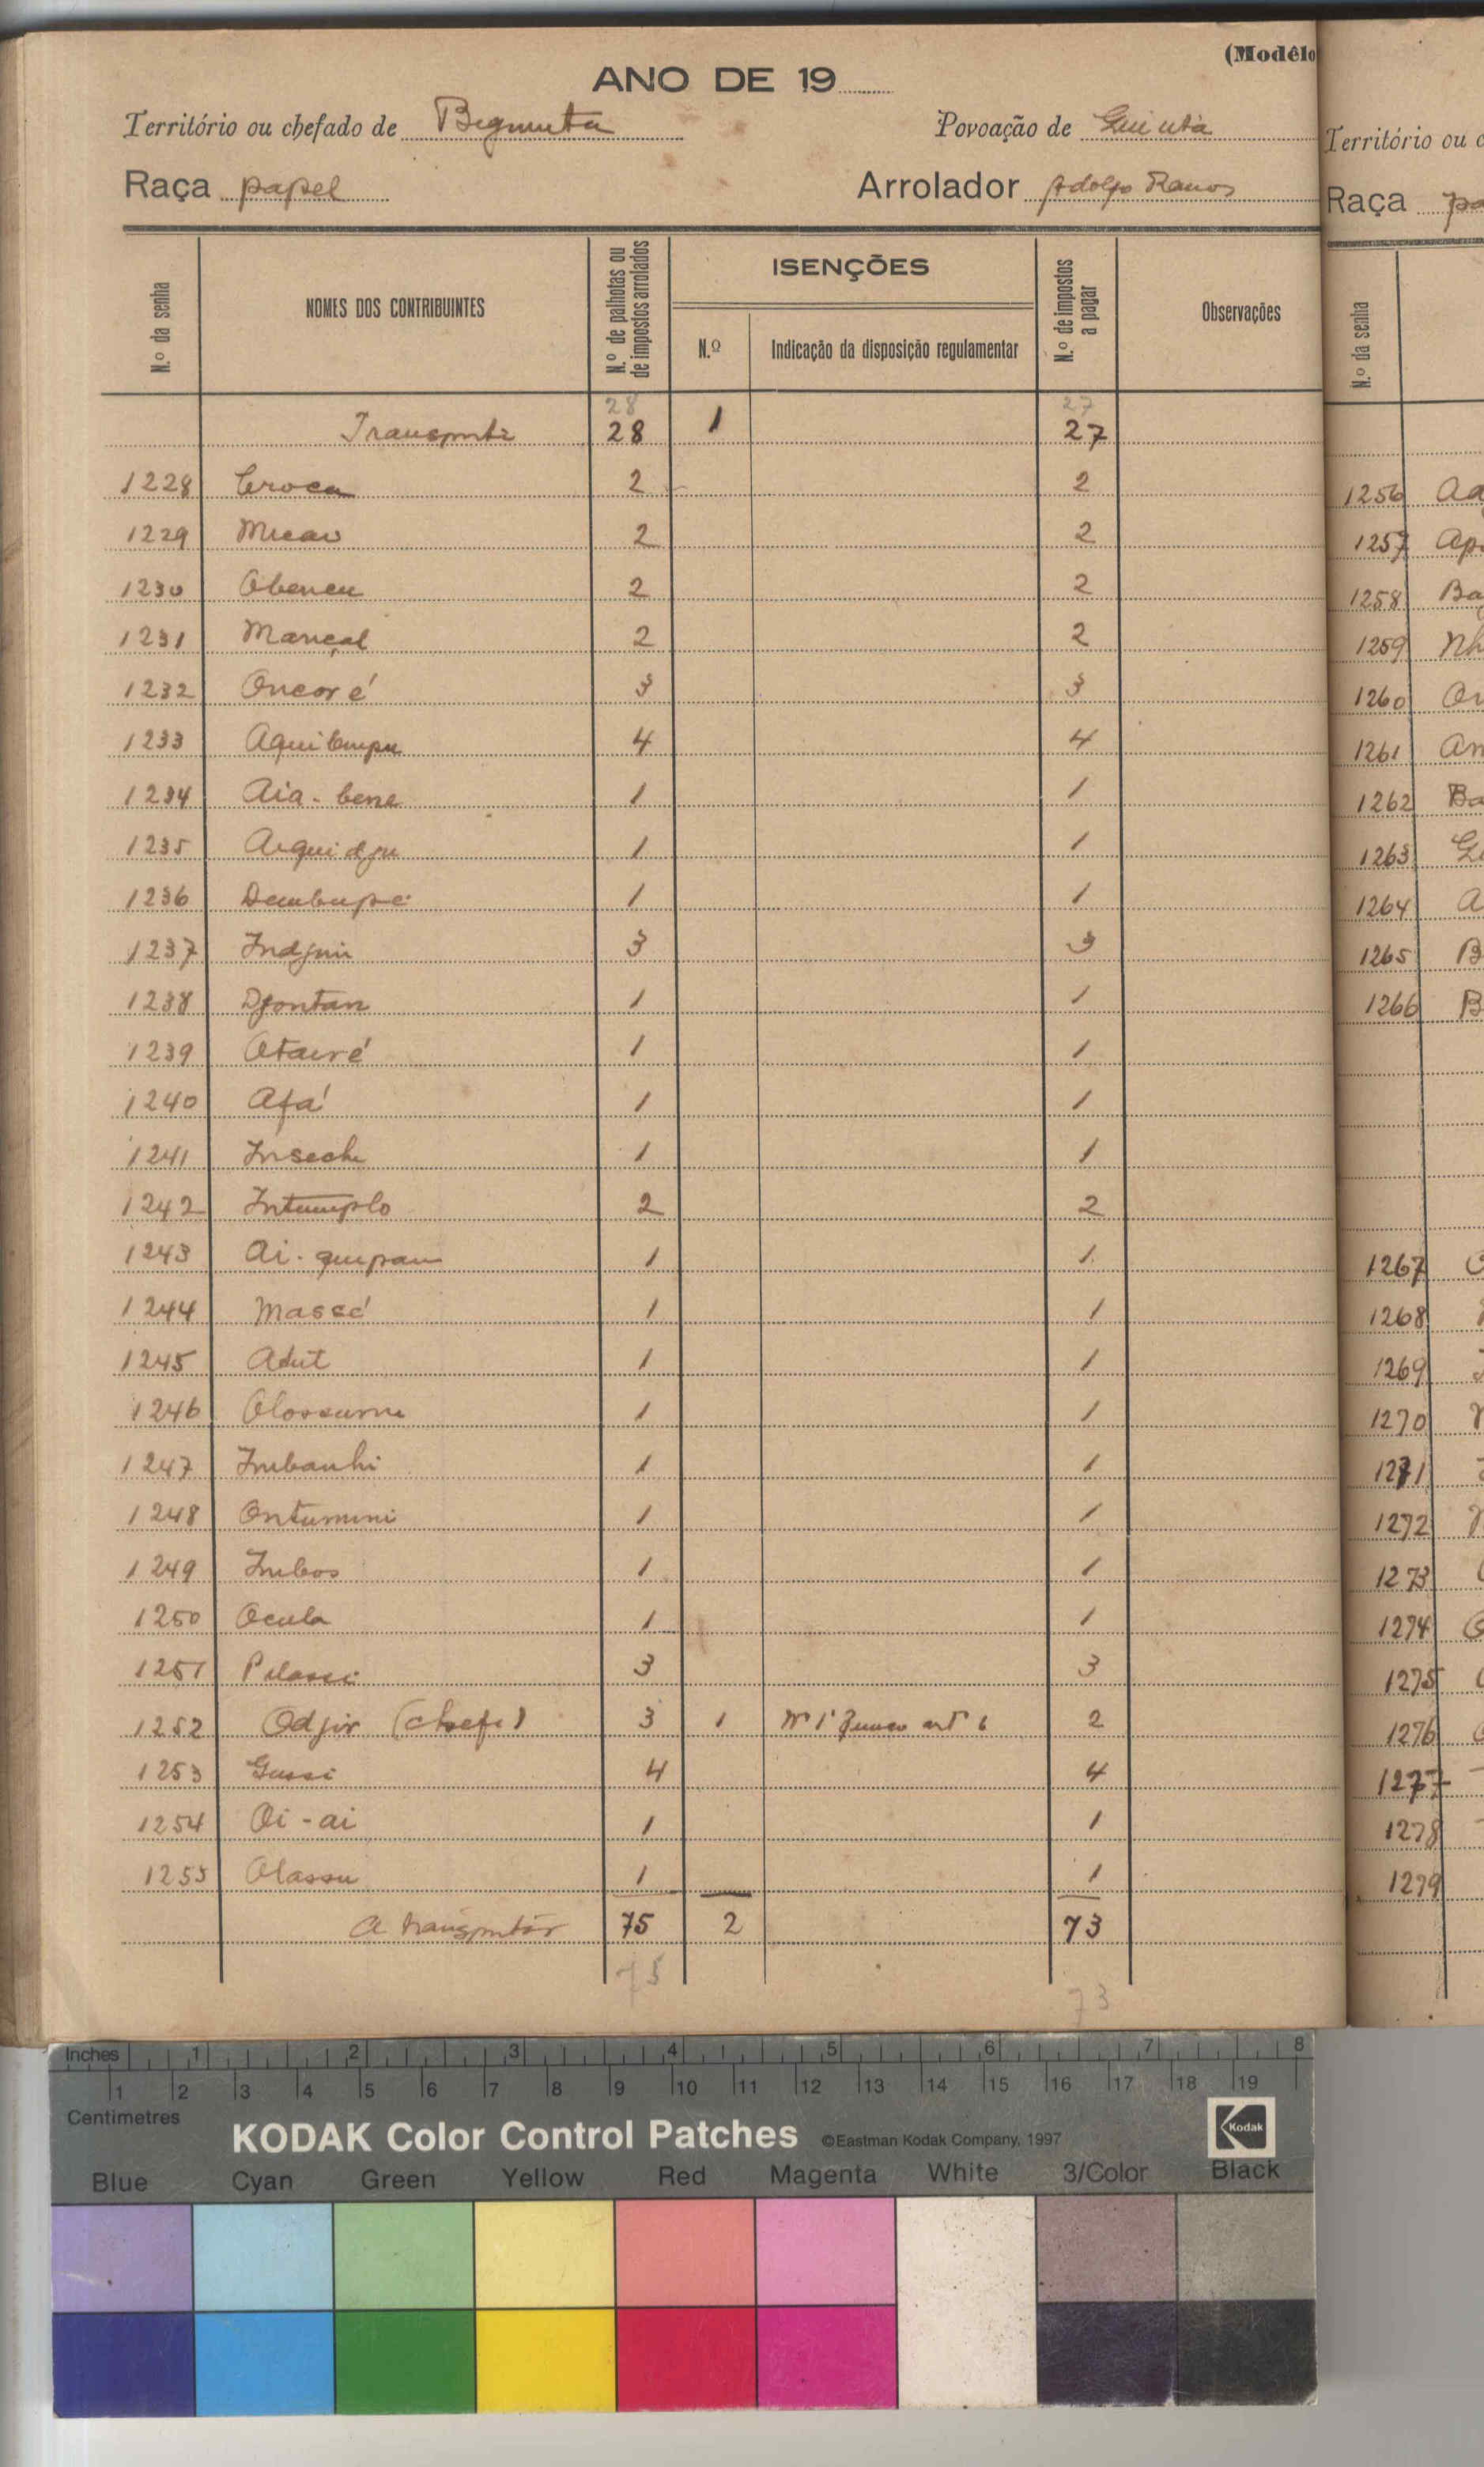 (Modêlo
ANO DE 19
Território ou chefado de Bigmuta Povoação de Quiuta
Raça papel Arrolador Adolfo Ramos
N.º da senha NOMES DOS CONTRIBUINTES N.º de palhotas ou de impostos arrolados ISENÇÕES N.º Indicação da disposição regulamentar N.º de impostos a pagar Observações
28 27
Transporte 28 1 27
1228 Croca 2 2
1229 Micau 2 2
1230 Obeneu 2 2
1231 Mançal 2 2
1232 Oncoré 3 3
1233 Aquibumpu 4 4
1234 Aia-bene 1 1
1235 Aiquidju 1 1
1236 Dembupe 1 1
1237 Indjim 3 3
1238 Djontan 1 1
1239 Otairé 1 1
1240 Afá 1 1
1241 Insech 1 1
1242 Intumplo 2 2
1243 Ai-quipam 1 1
1244 Massé 1 1
1245 Adut 1 1
1246 Olossume 1 1
1247 Imbanhi 1 1
1248 Ontumini 1 1
1249 Imbos 1 1
1250 Ocula 1 1
1251 Pilassi 3 3
1252 Odjir (chefe) 3 1 Nº 1º art 6 2
1253 Gussi 4 4
1254 Oi-ai 1 1
1255 Olassu 1 1
A transportar 75 2 73
75 73
Território ou c
Raça pa
N.º da senha
1256 Aa
1257 Ap
1258 Ba
1259 Nh
1260 On
1261 An
1262 Ba
1263
1264 A
1265 B
1266 B
1267
1268
1269
1270
1271
1272
1273
1274
1275
1276
1277
1278
1279
Inches 1 2 3 4 5 6 7 8
1 2 3 4 5 6 7 8 9 10 11 12 13 14 15 16 17 18 19
Centimetres
KODAK Color Control Patches ©Eastman Kodak Company, 1997 Kodak
Blue Cyan Green Yellow Red Magenta White 3/Color Black